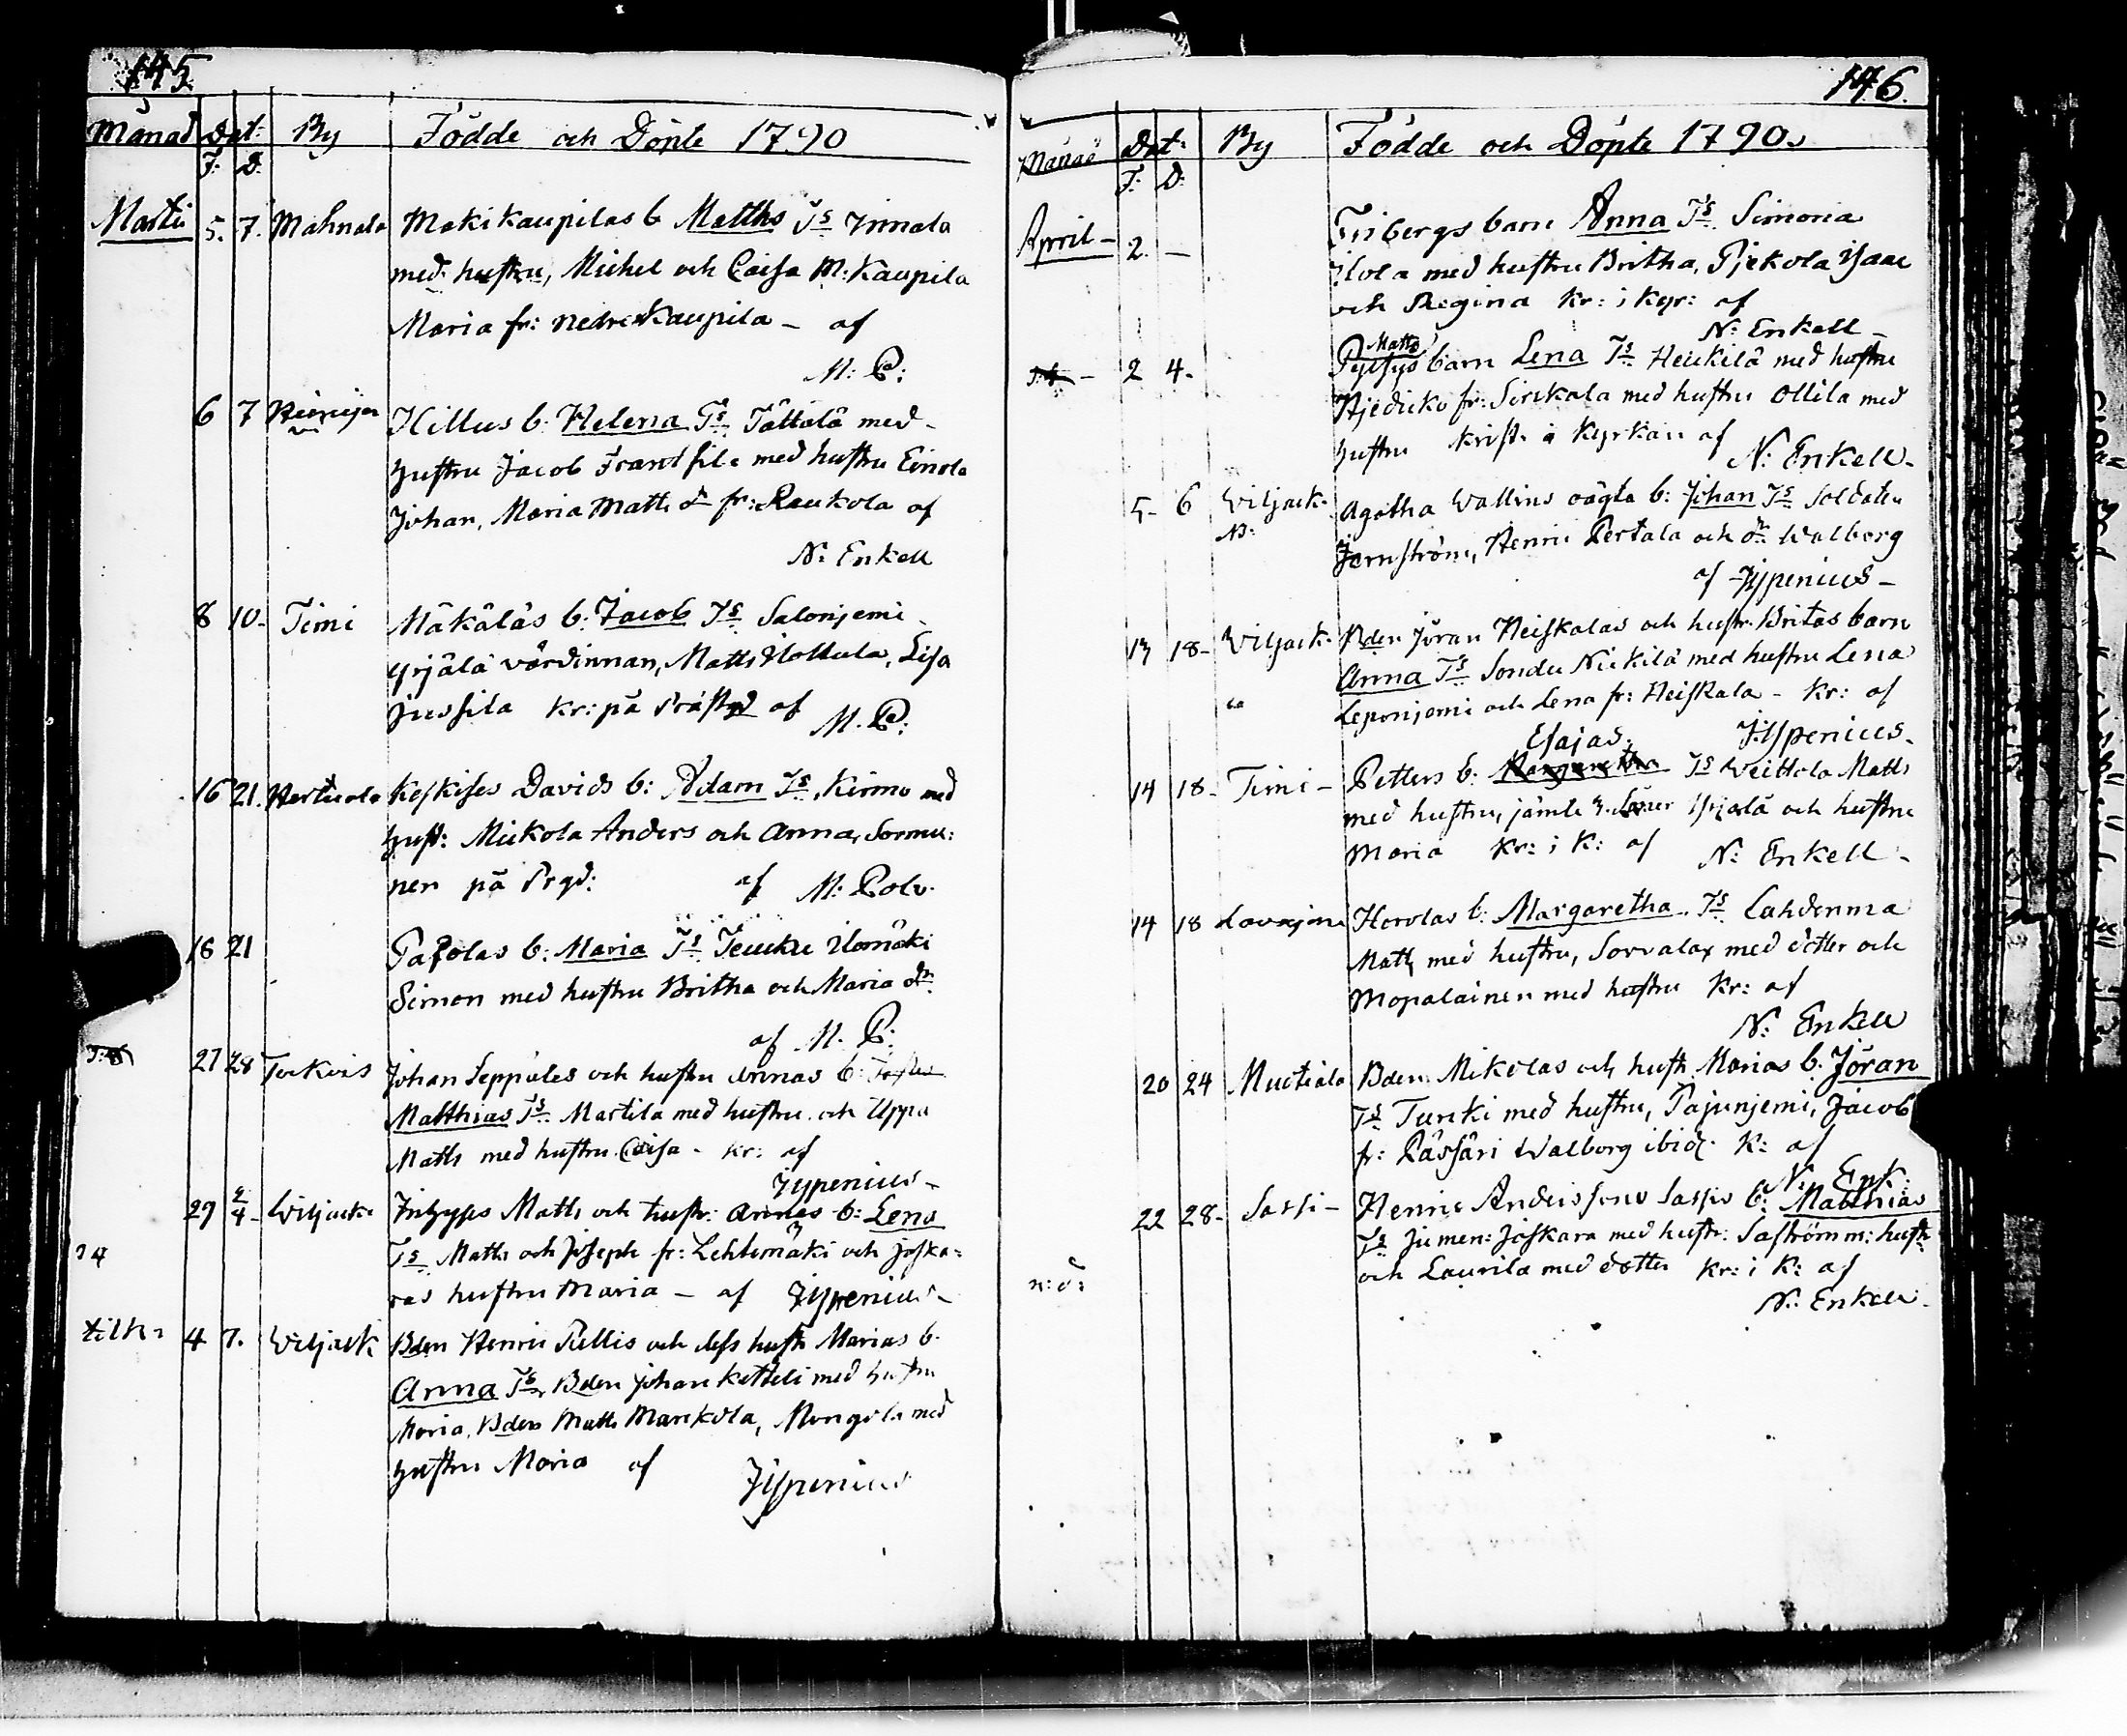 145
Månad Dat: By Födde och Döpte 1790
F. D.
Martii 5. 7. Mahnala Mäkikaupilas b Matths Ts Innala
med hustru, Michel och Caisa M: Kaupila
Maria fr: nedre Kaupila - af
M: P:
6 7 Hillus b: Helena Ts Tättälä med
hustru Jacob Frantsila med hustru Einola
Johan, Maria Matts dr fr: Raukola af
N: Enkell
8 10- Timi Mäkäläs b: Jacob Ts Salonjemi
Yrjälä värdinnan, Matts Hottula, Lisa
Jussila kr: på Prästgd af M. P:
16 21. Herttuala Koskises Davids b: Adam Ts, Kirmo med
hust: Mickola Anders och Anna, Sormu:
nen på Prgd: af M: Polv.
18 21 Papolas b: Maria Ts Teucku Ilomäki
Simon med hustru Britha och Maria dr
af M. P:
27 28 Torkois Johan Seppäles och hustru Annas b:
Matthias Ts Martila med hustru och Uppa
Matts med hustru Caisa - kr: af
Jypenius -
29 2/4 - Wiljack: Matts och hustr: Annas b: Lena
Ts Matts och Joseph fr: Lehtemäki och Joska=
ras hustru Maria - af Jypenius -
4 7. Wiljack Bden Henric Pullis och dess hustr Marias b.
Anna Ts Bden Johan Ketteli med hustru
Maria, Bden Matts Mankola, Mongola med
hustru Maria af Jypenius
146.
Månad Dat: By Födde och Döpte 1790.
F: D:
April - 2. - Fribergs barn Anna Ts Simoria
Ilola med hustru Britha, Pjekola Isaac
och Regina kr: i kyr: af
N: Enkell -
Matts
- 2 4. Pylsys barn Lena Ts Heickilä med hustru
Hjedicko fr: Sirckala med hustru Ollila med
hustru kristn i Kyrkan af N: Enkell -
5- 6 Wiljack- Agatha Wallins oägta b: Johan Ts Soldaten
N: Jernström, Henric Pertala och dr Walborg
af Jypenius -
13 18- Wiljack- Bden Jöran Heiskalas och hustr. Britas barn
Anna Ts Sonden Nickilä med hustru Lena
Leponjemi och Lena fr: Heiskala - kr: af
Esajas. Jypenius.
14 18- Timi - Petters b: Margaretha Ts Weittola Matts
med hustru, jämte Yrjälä och hustru
Maria kr: i K: af N: Enkell -
14 18 Lavajärvi Hervlas b: Margaretha. Ts Lahdenma
Matts med hustru, Sorvalax med dotter och
Mopalainen med hustru kr: af
N: Enkell
20 24 Mustiala Bden Mikolas och hustr Marias b. Jöran
Ts Turcki med hustru, Pajunjemi, Jacob
fr: Pässäri Walborg ibid. k: af
N. Enk:
22 28- Sassi - Henric Anderssons Sassis b: Matthias
Ts Jumen: Joskara med hustr: Saström m: hustr
n: d: och Laurila med dotter kr: i K: af
N: Enkell.